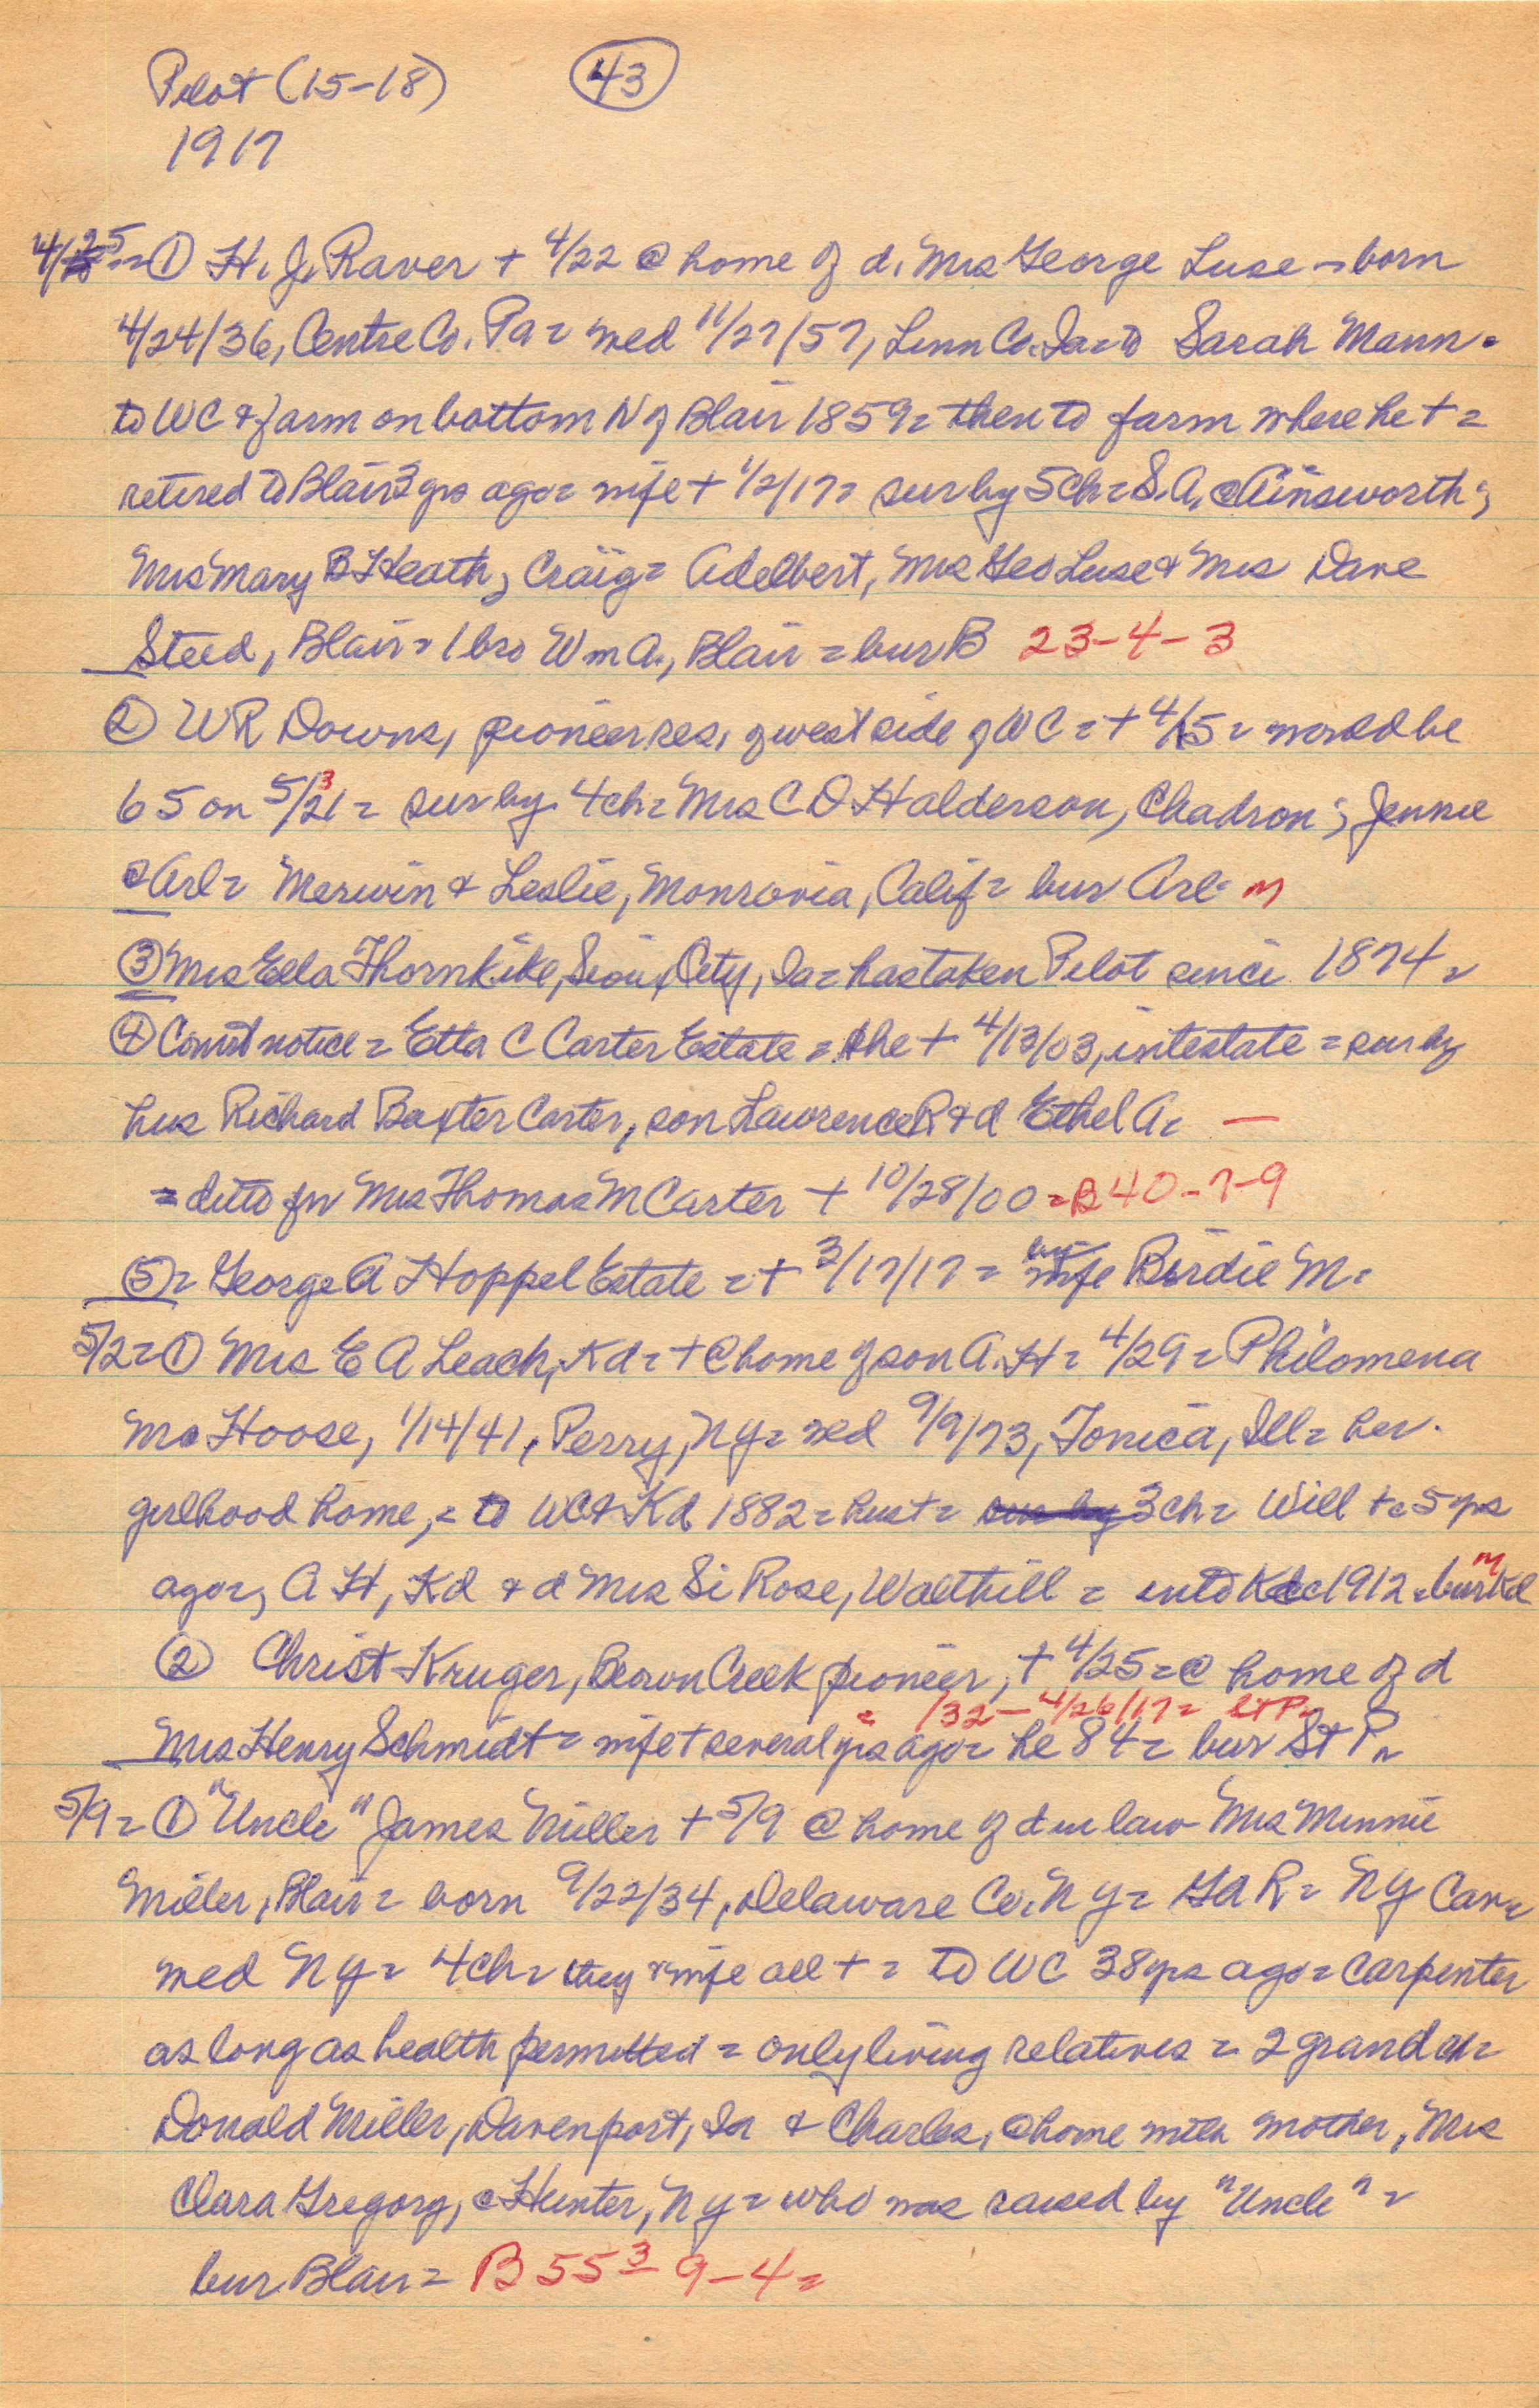 Pilot (15-18) 43
1917
4/25 = ① H. J. Raver + 4/22 @ home of d. Mrs George Luse = born
4/24/36, Centre Co. Pa = med 11/27/57, Linn Co. Ia = to Sarah Mann.
to WC & farm on bottom N of Blair 1859 = then to farm where he + =
retired to Blair 3 yrs ago = wife + 1/2/17 = sur by 5 ch = S. A. @ Ainsworth;
Mrs Mary B Heath, Craig = Adelbert, Mrs Geo Luse & Mrs Dave
Steed, Blair = 1 bro Wm A., Blair = bur B 23-4-3
② WR Downs, pioneer res. of west side of WC = + 4/15 = would be
65 on 5/21 = sur by 4 ch = Mrs C D Halderson, Chadron; Jennie
@ Arl = Merwin & Leslie, Monrovia, Calif = bur Arl = m
③ Mrs Ella Thornkike, Sioux City, Ia = has taken Pilot since 1874 =
④ Court notice = Etta C Carter Estate = she + 4/13/03, intestate = sur by
hus Richard Baxter Carter, son Lawrence R & d Ethel A = —
= ditto for Mrs Thomas M Carter + 10/28/00 = B 40-7-9
⑤ = George A Hoppel Estate = + 3/17/17 = wife Birdie M =
5/2 = ① Mrs E A Leach, Kd = + @ home of son A. H = 4/29 = Philomena
Ma Hoose, 1/14/41, Perry, NY = med 9/9/73, Tonica, Ill = her
girlhood home, = to WC & Kd 1882 = hus + = sur by 3 ch = Will + c 5 yrs
ago =, A H, Kd & d Mrs Si Rose, Walthill = into Kd c 1912 = bur Kd m
② Christ Kruger, Brown Creek pioneer, + 4/25 = @ home of d
= 132 — 4/26/17 = St P =
Mrs Henry Schmidt = wife + several yrs ago = he 84 = bur St P =
5/9 = ① "Uncle" James Miller + 5/9 @ home of d in law Mrs Minnie
Miller, Blair = born 9/22/34, Delaware Co. NY = GAR = NY Cav =
med NY = 4 ch = they & wife all + = to WC 38 yrs ago = carpenter
as long as health permitted = only living relatives = 2 grand ch =
Donald Miller, Davenport, Ia & Charles, @ home with mother, Mrs
Clara Gregory, @ Hunter, NY = who was raised by "Uncle" =
bur Blair = B 55 3 - 9-4 =